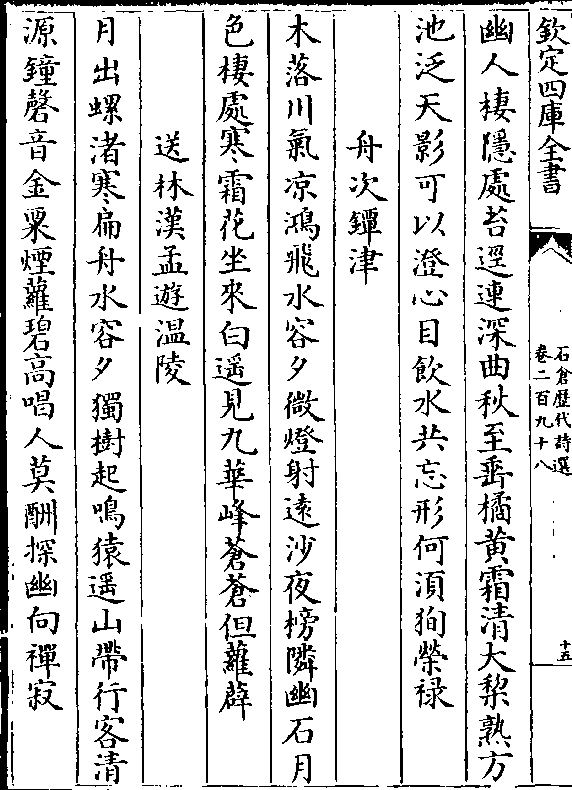 欽定四庫全書
石倉歷代詩選
卷二百九十八
十五
幽人棲隱處苔逕連深曲秋至垂橘黃霜清大梨熟方
池泛天影可以澄心目飲水共忘形何須狥榮禄
舟次鐔津
木落川氣凉鴻飛水容夕微燈射遠沙夜榜隣幽石月
色棲處寒霜花坐來白遥見九華峰蒼蒼但蘿薜
送林漢孟遊温陵
月出螺渚寒扁舟水容夕獨樹起鳴猿遥山帶行客清
源鐘磬音金粟煙蘿碧高唱人莫酬探幽向禪寂